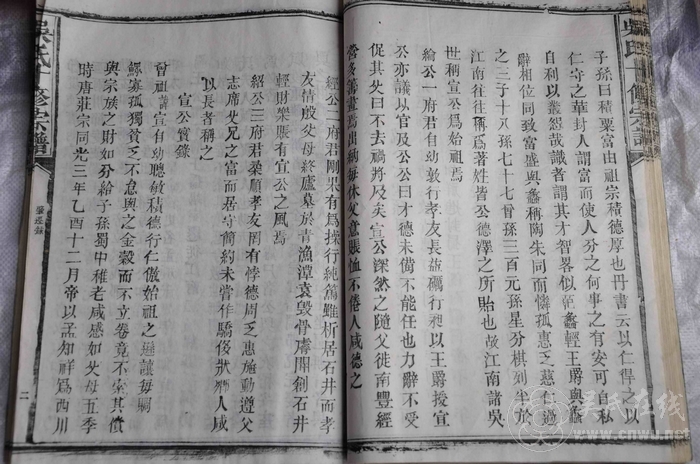 吳氏十修宗譜
子孫曰積粟富由祖宗積德厚也丹書云以仁得之以
仁守之華封人謂富而使人分之何事之有安可自私
自利以叢怨哉識者謂其才智畧似范蠡輕王爵與蠡
辭相位同致富盛與蠡稱陶朱同而憐孤惠乏慈仁過
之三子十八孫七十七曾孫三百元孫星分棋列半於
江南往往稱爲著姓皆公德澤之所貽也故江南諸吳
世稱宣公爲始祖焉
綸公一府君自幼敏行孝友長益礪行昶以王爵授宣
公亦議以官及公公曰才德未備不能任也力辭不受
促其父曰不去禍將及矣宣公深然之隨父徙南豐經
營多籌畫焉出納每休父意賑恤不倦人咸德之
經公一府君剛果有爲操行純篤雖析居石井而孝
友情殷父母終廬墓於青漁潭哀毀骨㾪開創石井
輕財樂賑有宣公之風焉
紹公三府君柔順孝友罔有悖德周乏惠施動遵父
志席父兄之富而居守簡約未嘗作驕侈狀鄉人咸
以長者稱之
宣公實錄
曾祖諱宣自幼聰敏積德行仁倣始祖之遜讓每嗣
鰥寡孤獨貧乏不怠與之金穀而不立卷竟不索其償
與宗族之財如分給子孫蜀中稚老咸感如父母五季
時唐莊宗同光三年乙酉十二月帝以孟知祥爲西川
吳氏十修宗譜
二
吴氏在线